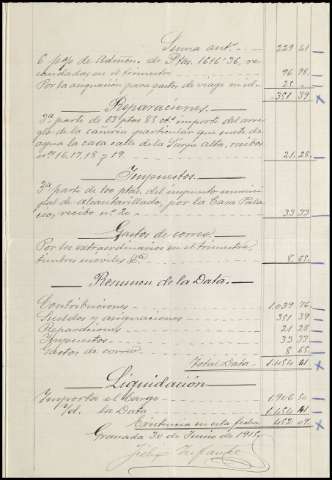 Suma antr. 229 61
6 p% de Admón. de Ptas. 1616'36, re-
caudadas en el trimestre 96 98
Por la asignación para gastos de viaje en id. 25 "
351 39
Reparaciones.
3ª parte de 63 ptas 85 cts importe del arre-
glo de la cañería particular que surte de
agua la casa calle de la Tierra Alta, recibos
nos 16, 17, 18 y 19. 21 28
Impuestos.
3ª parte de 100 ptas. del impuesto munici-
pal de alcantarillado, por la Casa Pala-
cio, recibo nº 20 33 33
Gastos de correo.
Por los extraordinarios en el trimestre,
timbres móviles &ª 8 65
Resumen de la Data.
Contribuciones 1.039 76
Sueldos y asignaciones 351 39
Reparaciones 21 28
Impuestos 33 33
Gastos de correo 8 65
Total Data 1.454 41
Liquidación
Importa el Cargo 1.906 50
id. la Data 1.454 41
Existencia en esta fecha 452 09
Granada 30 de Junio de 1915.
Félix Infante